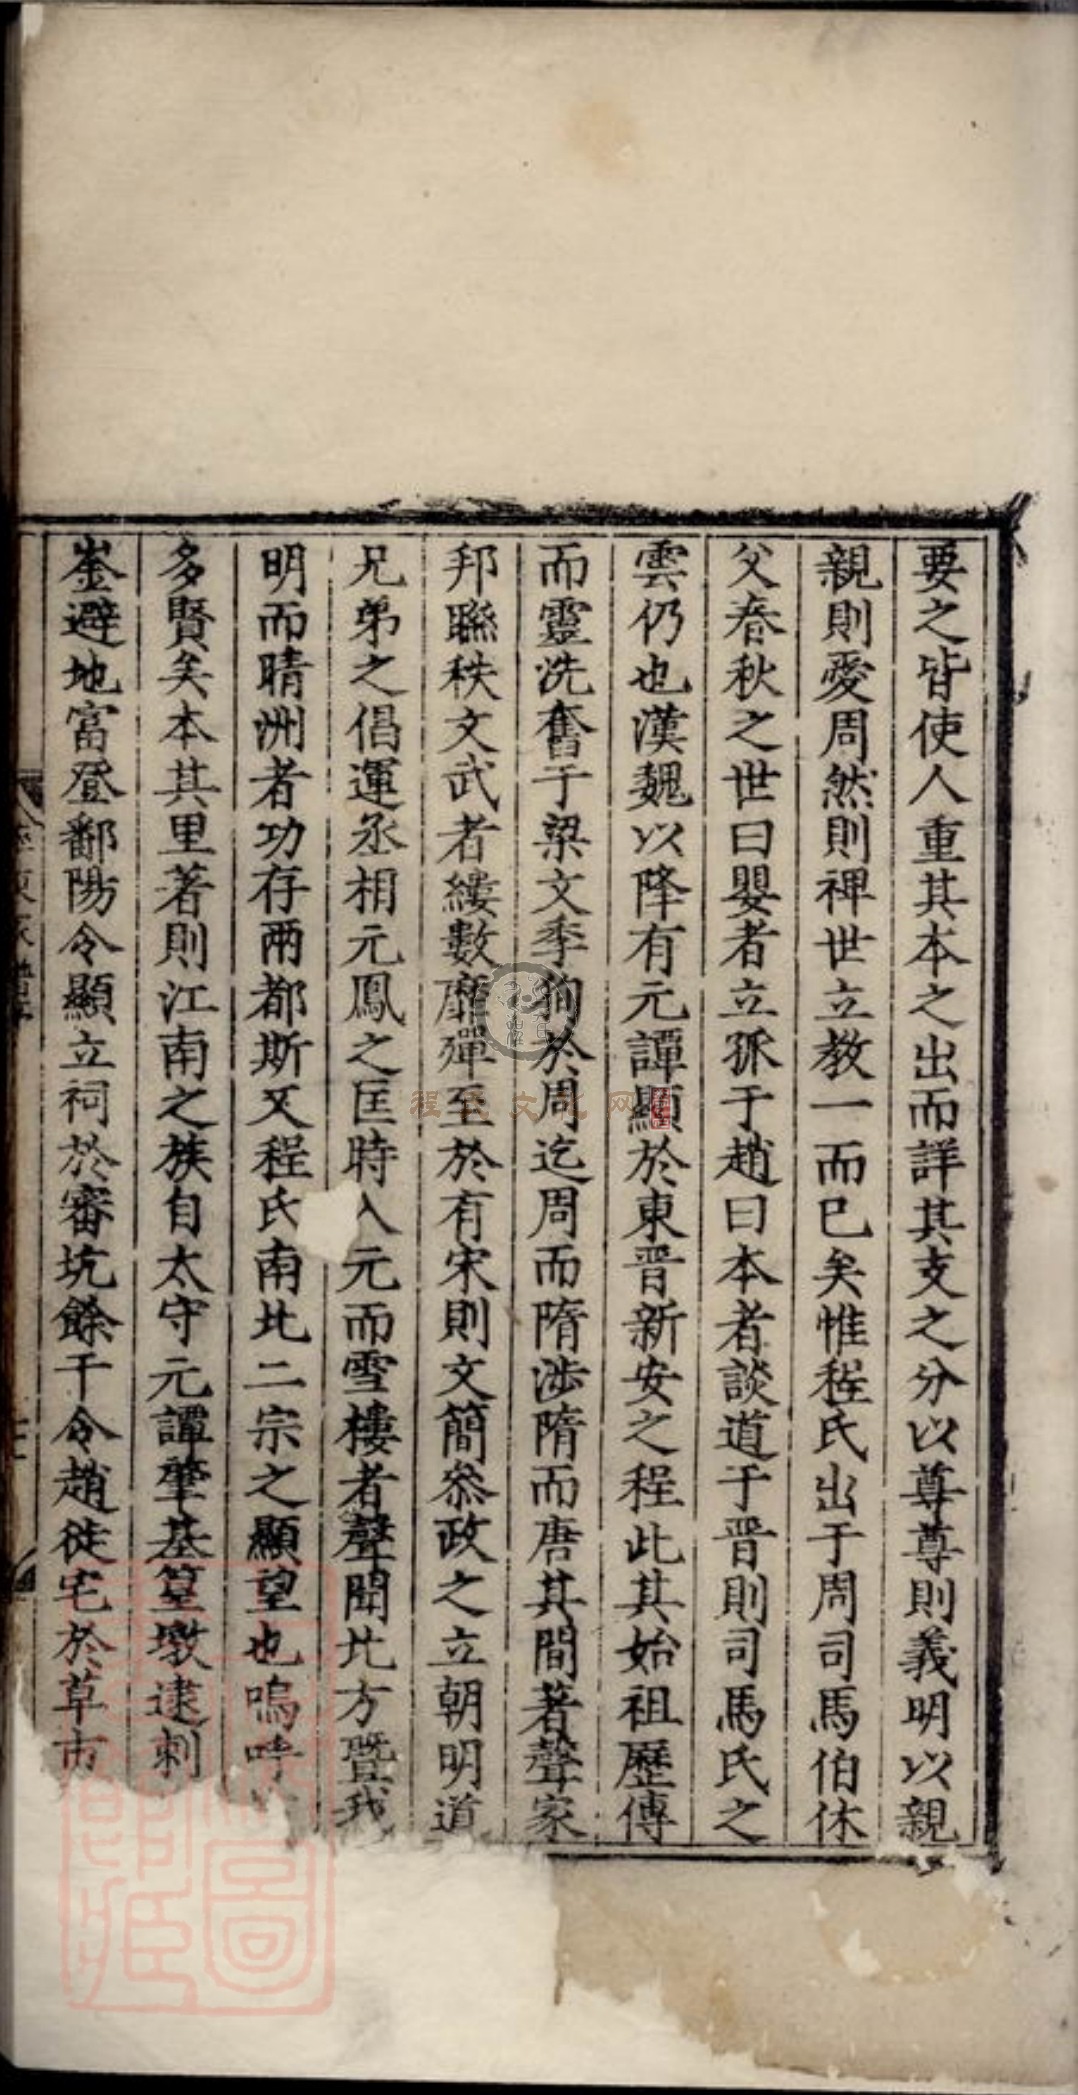 要之皆使人重其本之出而詳其支之分以尊尊則義明以親
親則愛周然則禆世立教一而已矣惟程氏出于周司馬伯休
父春秋之世曰嬰者立孤于趙曰本者談道于晋則司馬氏之
雲仍也漢魏以降有元譚顯於東晋新安之程此其始祖歷傳
而靈洗奮于梁文季狥於周迄周而隋涉隋而唐其間著聲家
邦聮秩文武者縷數靡殫至於有宋則文簡叅政之立朝明道
兄弟之倡運丞相元鳳之匡時入元而雪樓者聲聞北方曁我
明而晴洲者功存兩都斯又程氏南北二宗之顯望也嗚呼
多賢矣本其里著則江南之族自太守元譚肇基篁墩逮刺
崟避地富登鄱陽令顯立祠於審坑餘干令趙徙宅於草市
程氏文化网